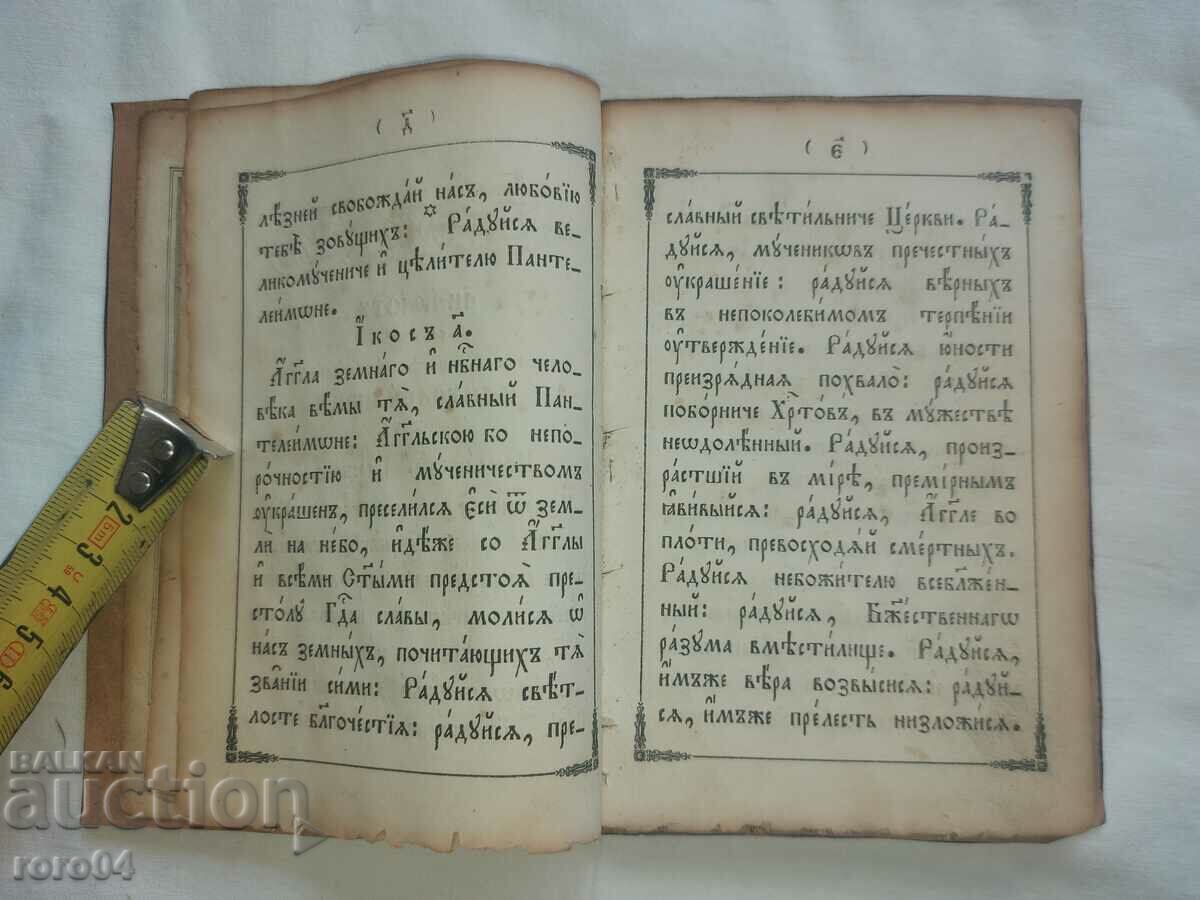 ( д҃ )
лѣ́зней свобожда́й на́съ, любо́вїю
тебѣ̀ зову́щихъ: * Ра́дуйсѧ ве-
ликому́чениче и҆ цѣли́телю Панте-
леи́мѡне.
І҆́косъ а҃.
А҆́гг҃ла земна́го и҆ нб҃наго чело-
вѣ́ка вѣ́мы тѧ̀, сла́вный Пан-
телеи́мѡне: А҆́гг҃льскою бо непо-
ро́чностїю и҆ му́ченичествомъ
ᲂу҆кра́шен, пресели́лсѧ є҆сѝ ѿ зем-
лѝ на не́бо, и҆дѣ́же со А҆́гг҃лы
и҆ всѣ́ми Ст҃ы́ми предстоѧ̀ пре-
сто́лу Гд҇а сла́вы, моли́сѧ ѡ҆
на́съ земны́хъ, почита́ющихъ тѧ̀
зва́нїи си́ми: Ра́дуйсѧ свѣ́т-
лосте бл҃гоче́стїѧ: ра́дуйсѧ, пре-
( є҃ )
сла́вный свѣти́льниче Це́ркви. Ра́-
дуйсѧ, му́ченикѡвъ пречестны́хъ
ᲂу҆краше́нїе: ра́дуйсѧ вѣ́рныхъ
въ непоколеби́момъ терпѣ́нїи
ᲂу҆твержде́нїе. Ра́дуйсѧ ю҆́ности
преизрѧ́днаѧ похвало̀: ра́дуйсѧ
побо́рниче Хрⷭ҇то́въ, въ му́жествѣ
неѡдолѣ́нный. Ра́дуйсѧ, произ-
ра́стшїй въ мі́рѣ, премі́рнымъ
ꙗ҆ви́выйсѧ: ра́дуйсѧ, А҆́гг҃ле во
пло́ти, превосходѧ́й сме́ртныхъ.
Ра́дуйсѧ небожи́телю всебл҃же́н-
ный: ра́дуйсѧ, Бж҃е́ственнагѡ
ра́зума вмѣсти́лище. Ра́дуйсѧ,
и҆́мъже вѣ́ра возвы́сисѧ: ра́дуй-
сѧ, и҆́мъже пре́лесть низложи́сѧ.
2
3
4
5
6
BALKAN
auction
roro04